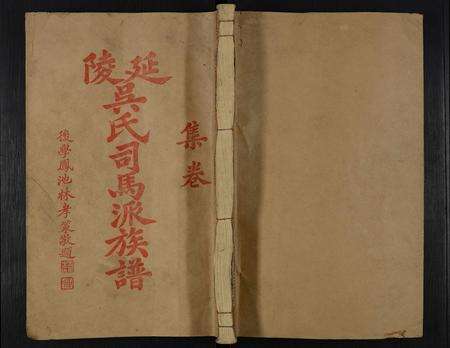 延陵
吳氏司馬派族譜
集卷
後學鳳池林孝策敬題